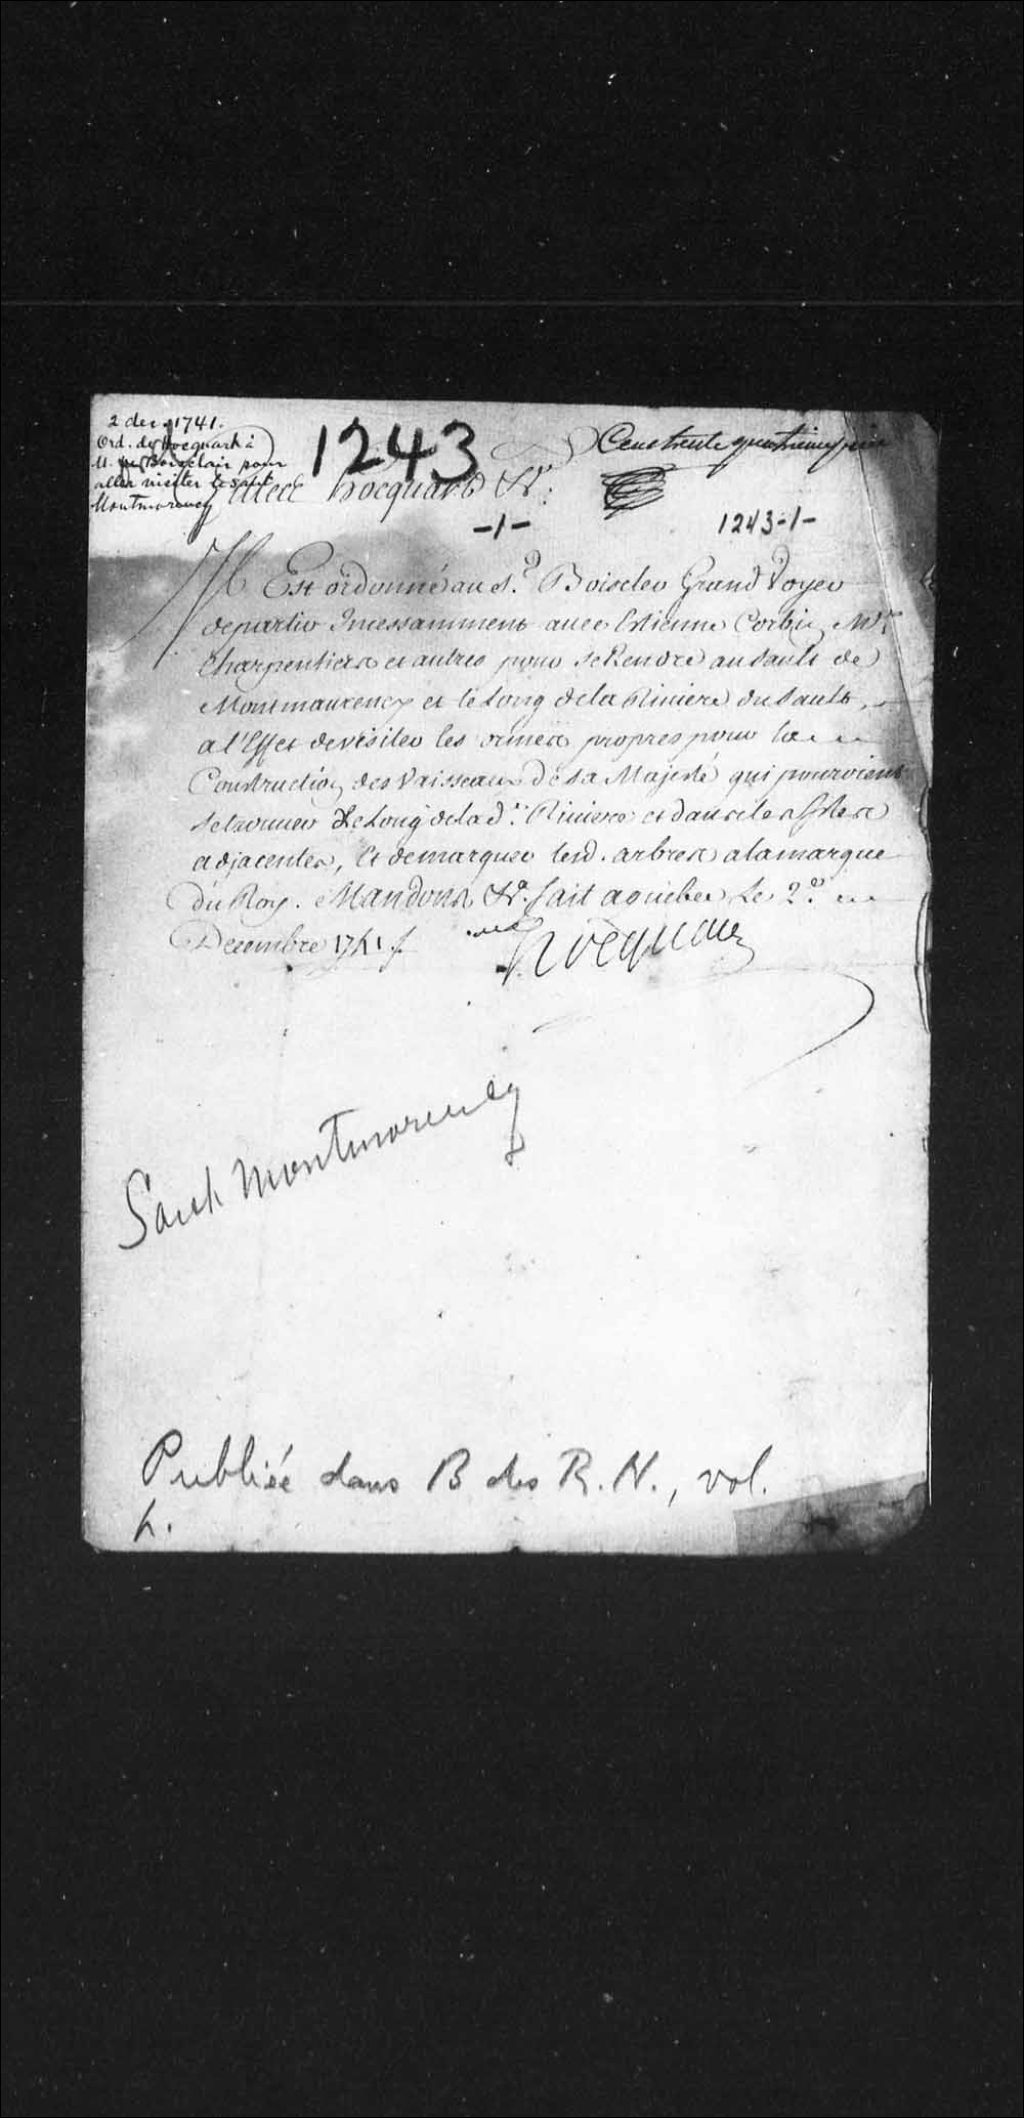 2 dec. 1741.
Ord. de Hocquart à
M. de Boisclair pour
aller visiter le sault
Montmorency
1243
Cent trente quatrieme
Gilles Hocquart &c:
-1-
1243-1-
Il Est ordonné au S.r Boiscler Grand Voyer
departir Incessamment avec Estienne Corbin, M.e
Charpentiers et autres pour se Rendre au Sault de
Montmaurency et le long de la Riviere du Sault,
a l'Effet de visiter les ormere propres pour la
Construction des Vaisseaux de sa Majesté qui pourroient
se trouver Le Long de la d.e Riviere et dans les Isles
adjacentes, Et de marquer lesd. arbres a la marque
du Roy. Mandons &c. fait a quebec Le 2.e
Decembre 1741 ./.
Hocquart
Sault Montmorency
Publiée dans B des R.H., vol.